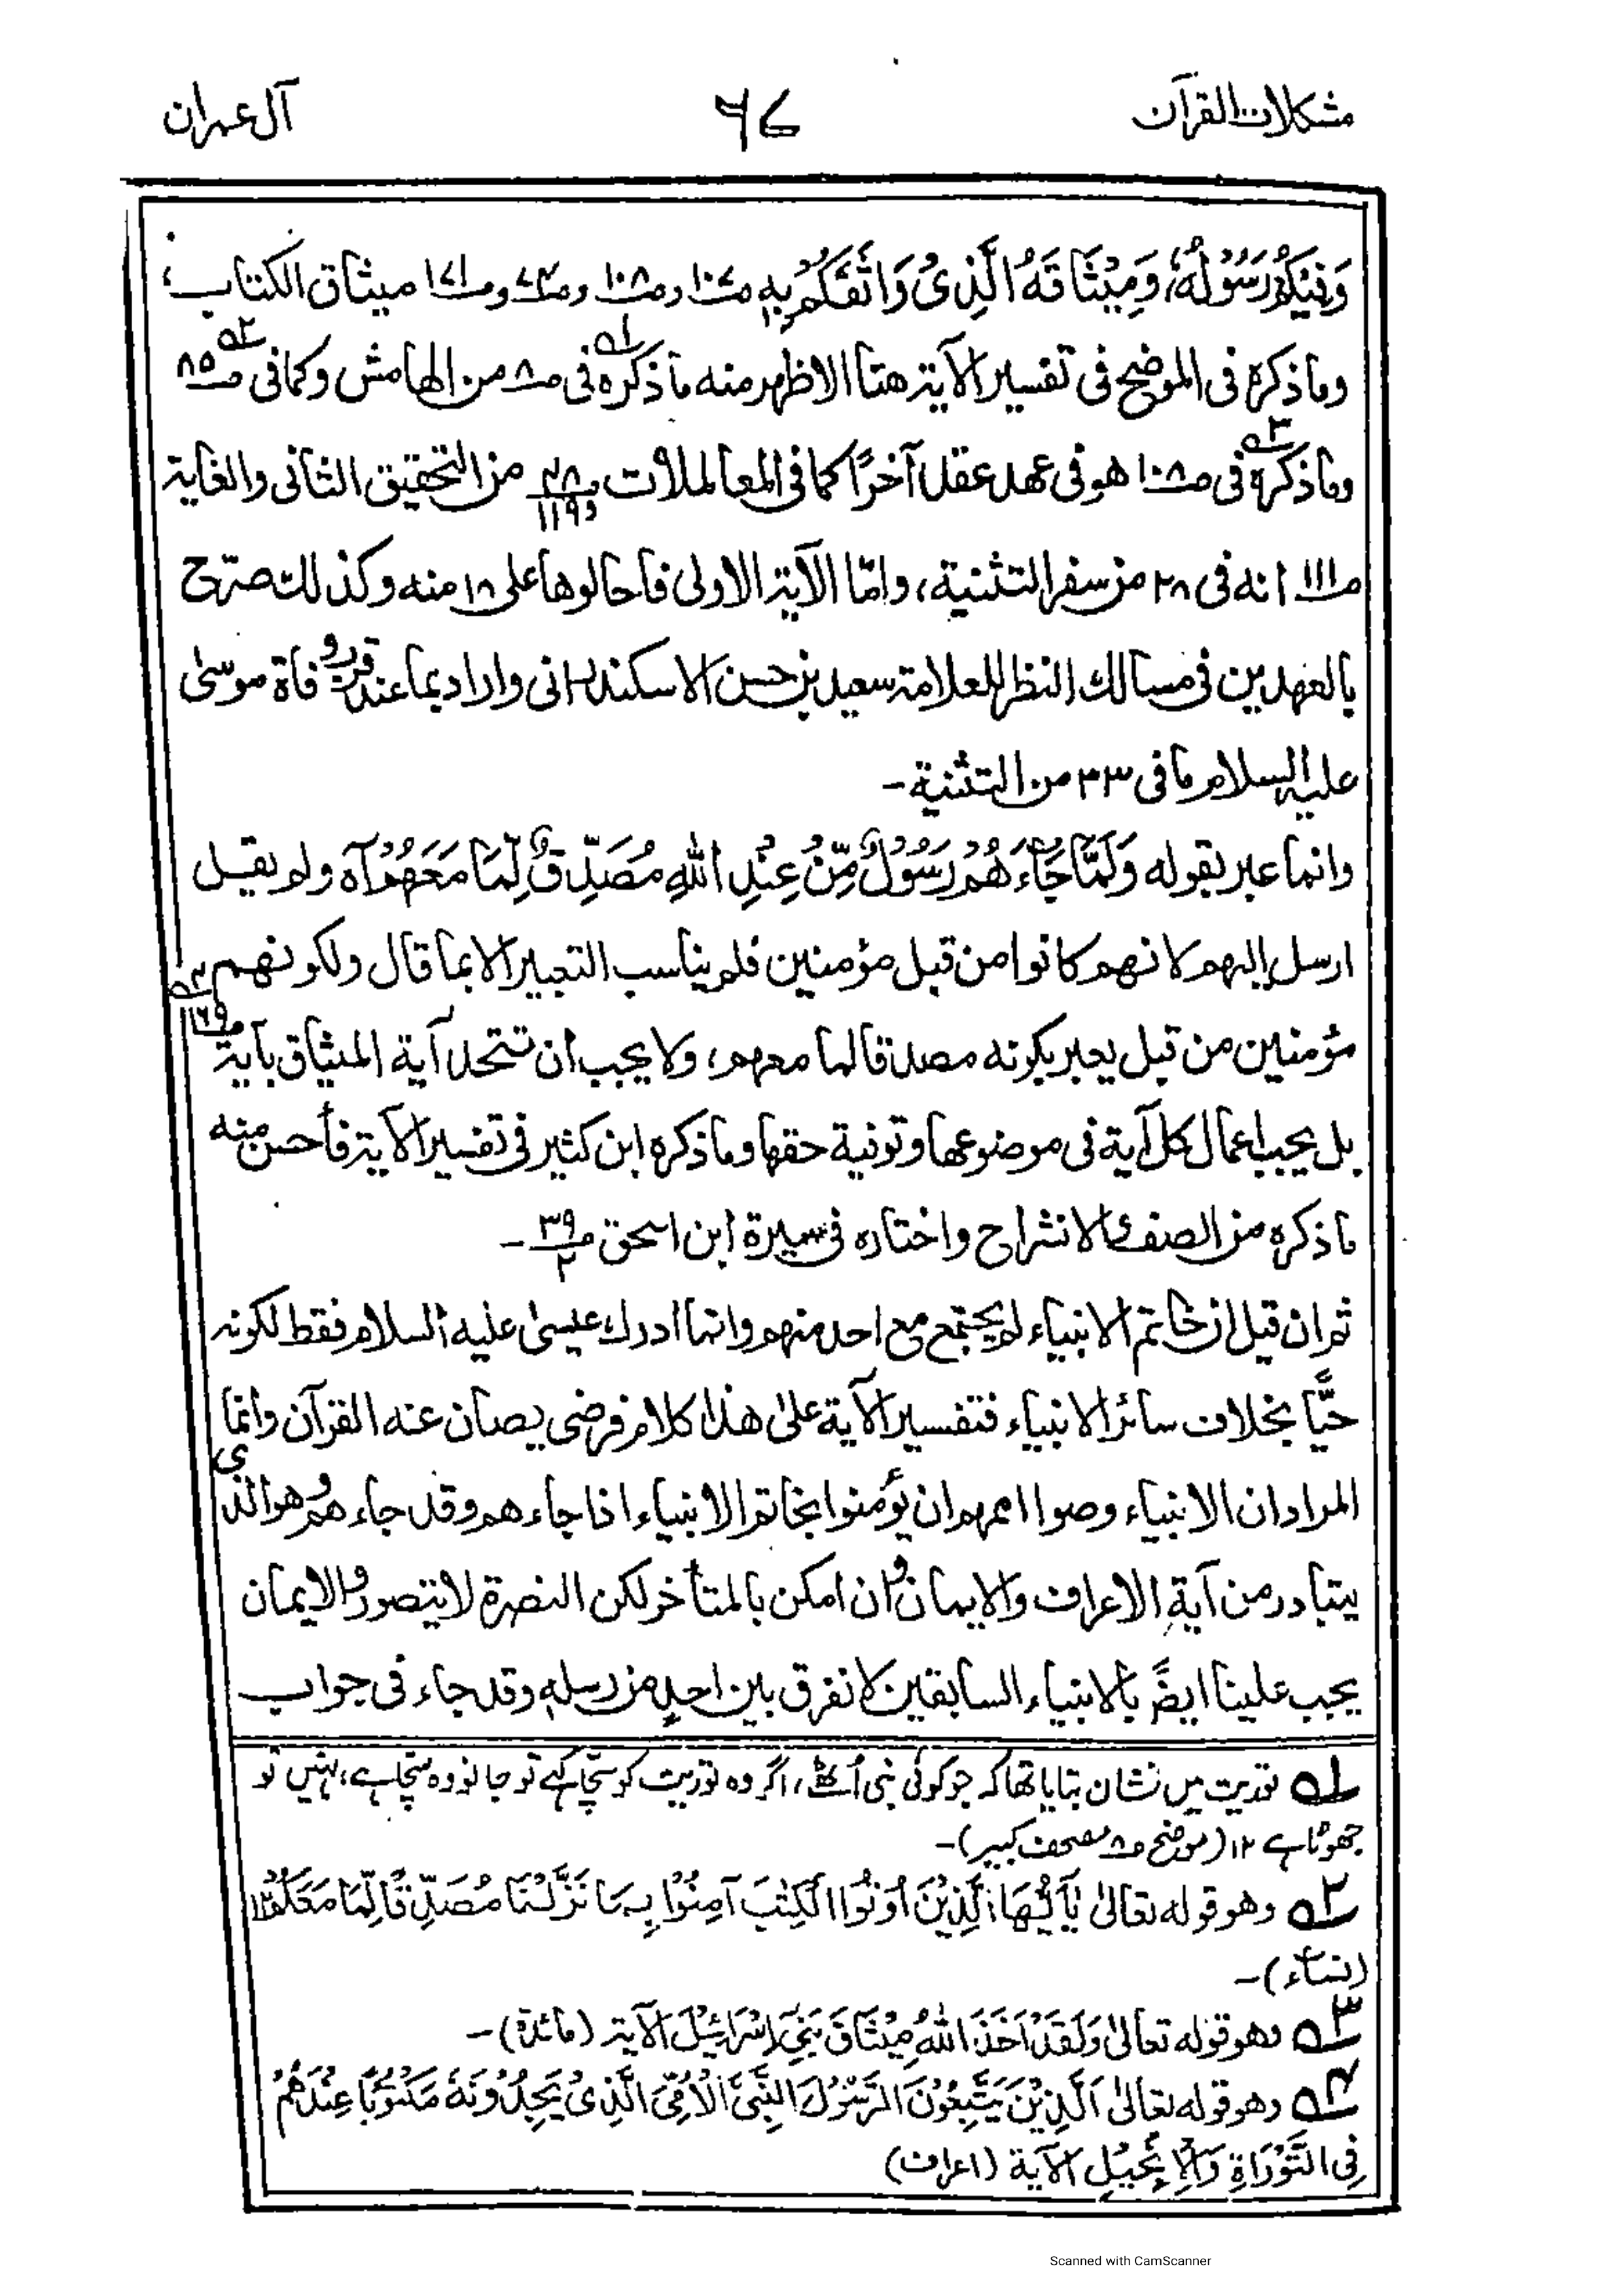 مشكلات القرآن
٩٤
آل عمران
وَفِيْكُمْ رَسُوْلُهٗ، وَمِيْثَاقَهُ الَّذِیْ وَاثَقَكُمْ بِهٖ صـ١٠٧ وصـ١٠٨ وصـ٧٤ وصـ١٧١ ميثاق الكتاب،
وما ذكره فى الموضح فى تفسير الآية هنا الاظهر منه ما ذكره فى صـ٨ من الهامش وكما فى صـ٨٥
وما ذكره فى صـ١٠٨ هو فى عهد عقل آخرًا كما فى المعالملات صـ٢٨ و١١٩ من التحقيق الثانى والغاية
صـ١١١ انه فى ٢٨ من سفر التثنية، وامّا الآية الاولى فأحالوها على ١٨ منه وكذلك صرّح
بالعهدين فى مسالك النظر للعلامة سعيد بن حسن الاسكندرانى واراد بما عند قرب وفاة موسىٰ
عليه السلام ما فى ٣٣ من التثنية -
وانما عبر بقوله وَلَمَّا جَآءَهُمْ رَسُوْلٌ مِّنْ عِنْدِ اللهِ مُصَدِّقٌ لِّمَا مَعَهُمْ آه ولم يقل
ارسل اليهم لانهم كانوا من قبل مؤمنين فلم يناسب التعبير الا بما قال ولكونهم
مؤمنين من قبل يعبر بكونه مصدقا لما معهم، ولا يجب ان تتحد آية الميثاق بآية صـ١٦٩
بل يجب اعمال كل آية فى موضوعها وتوفية حقها وما ذكره ابن كثير فى تفسير الآية فأحسن منه
ما ذكره من الصف والانشراح واختاره فى سيرة ابن اسحق صـ٣٩/٢ -
ثم ان قيل ان خاتم الانبياء لم يجتمع مع احد منهم وانما ادرك عيسىٰ عليه السلام فقط لكونه
حيًّا بخلاف سائر الانبياء فتفسير الآية علىٰ هذا كلام فرضى يصان عنه القرآن وانما
المراد ان الانبياء وصوا اممهم ان يؤمنوا بخاتم الانبياء اذا جاءهم وقد جاءهم وهو الذى
يتبادر من آية الاعراف والايمان وان امكن بالمتأخر لكن النصرة لا تتصور والايمان
يجب علينا ايضًا بالانبياء السابقين لا نفرق بين احدٍ من رسله وقد جاء فى جواب
١ه توریت میں نشان بتایا تھا کہ جو کوئی نبی اُٹھے، اگر وہ توریت کو سچا کہے تو جانو وہ سچا ہے، نہیں تو
جھوٹا ہے ١٢ (موضح صـ٨ مصحف کبیر) -
٢ه وهو قوله تعالىٰ يٰٓاَيُّهَا الَّذِيْنَ اُوْتُوا الْكِتٰبَ آمِنُوْا بِمَا نَزَّلْنَا مُصَدِّقًا لِّمَا مَعَكُمْ ١٢
(نساء) -
٣ه وهو قوله تعالىٰ وَلَقَدْ اَخَذَ اللهُ مِيْثَاقَ بَنِیْ اِسْرَائِيْلَ الآية (مائدة) -
٤ه وهو قوله تعالىٰ اَلَّذِيْنَ يَتَّبِعُوْنَ الرَّسُوْلَ النَّبِیَّ الْاُمِّیَّ الَّذِیْ يَجِدُوْنَهٗ مَكْتُوْبًا عِنْدَهُمْ
فِی التَّوْرَاةِ وَالْاِنْجِيْلِ الآية (اعراف)
Scanned with CamScanner